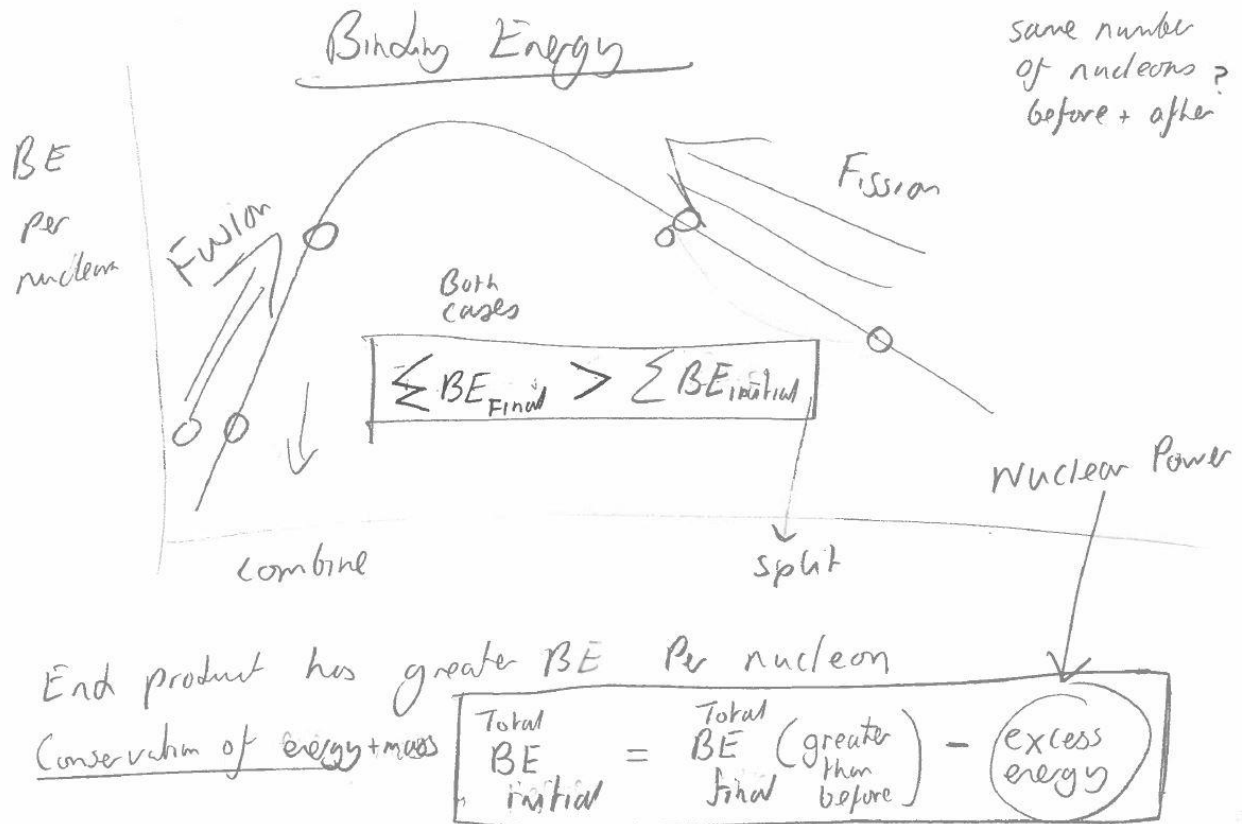 Binding Energy
same number
of nucleons ?
before + after
BE
per
nucleon
Fusion
Fission
Both
cases
∑ BE Final > ∑ BE initial
Nuclear Power
combine
split
End product has greater BE Per nucleon
Conservation of energy + mass
Total BE initial = Total BE final (greater than before) - excess energy